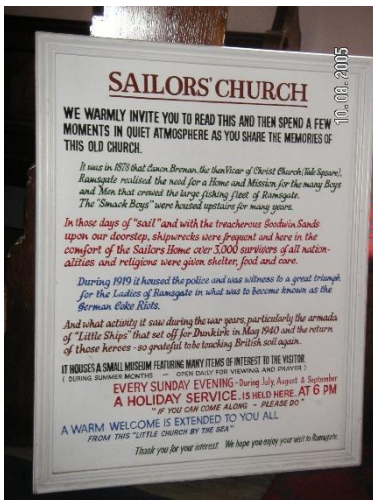 SAILORS' CHURCH
WE WARMLY INVITE YOU TO READ THIS AND THEN SPEND A FEW
MOMENTS IN QUIET ATMOSPHERE AS YOU SHARE THE MEMORIES OF
THIS OLD CHURCH.
It was in 1878 that Canon Brenan, the then Vicar of Christ Church (Vale Square),
Ramsgate realised the need for a Home and Mission for the many Boys
and Men that crewed the large fishing fleet of Ramsgate.
The "Smack Boys" were housed upstairs for many years.
In those days of "sail" and with the treacherous Goodwin Sands
upon our doorstep, shipwrecks were frequent and here in the
comfort of the Sailors Home over 3,000 survivors of all nation-
alities and religions were given shelter, food and care.
During 1919 it housed the police and was witness to a great triumph
for the Ladies of Ramsgate in what was to become known as the
German Coke Riots.
And what activity it saw during the war years, particularly the armada
of "Little Ships" that set off for Dunkirk in May 1940 and the return
of those heroes - so grateful to be touching British soil again.
IT HOUSES A SMALL MUSEUM FEATURING MANY ITEMS OF INTEREST TO THE VISITOR
( DURING SUMMER MONTHS - OPEN DAILY FOR VIEWING AND PRAYER )
EVERY SUNDAY EVENING - During July, August & September
A HOLIDAY SERVICE. IS HELD HERE. AT 6 PM
"IF YOU CAN COME ALONG - PLEASE DO"
A WARM WELCOME IS EXTENDED TO YOU ALL
FROM THIS "LITTLE CHURCH BY THE SEA"
Thank you for your interest. We hope you enjoy your visit to Ramsgate.
10.08.2005